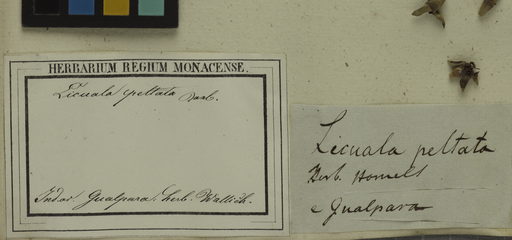 HERBARIUM REGIUM MONACENSE.
Licuala peltata Roxb.
Ind. or. Gualpara. herb. Wallich.
Licuala peltata
Herb.
e Gualpara